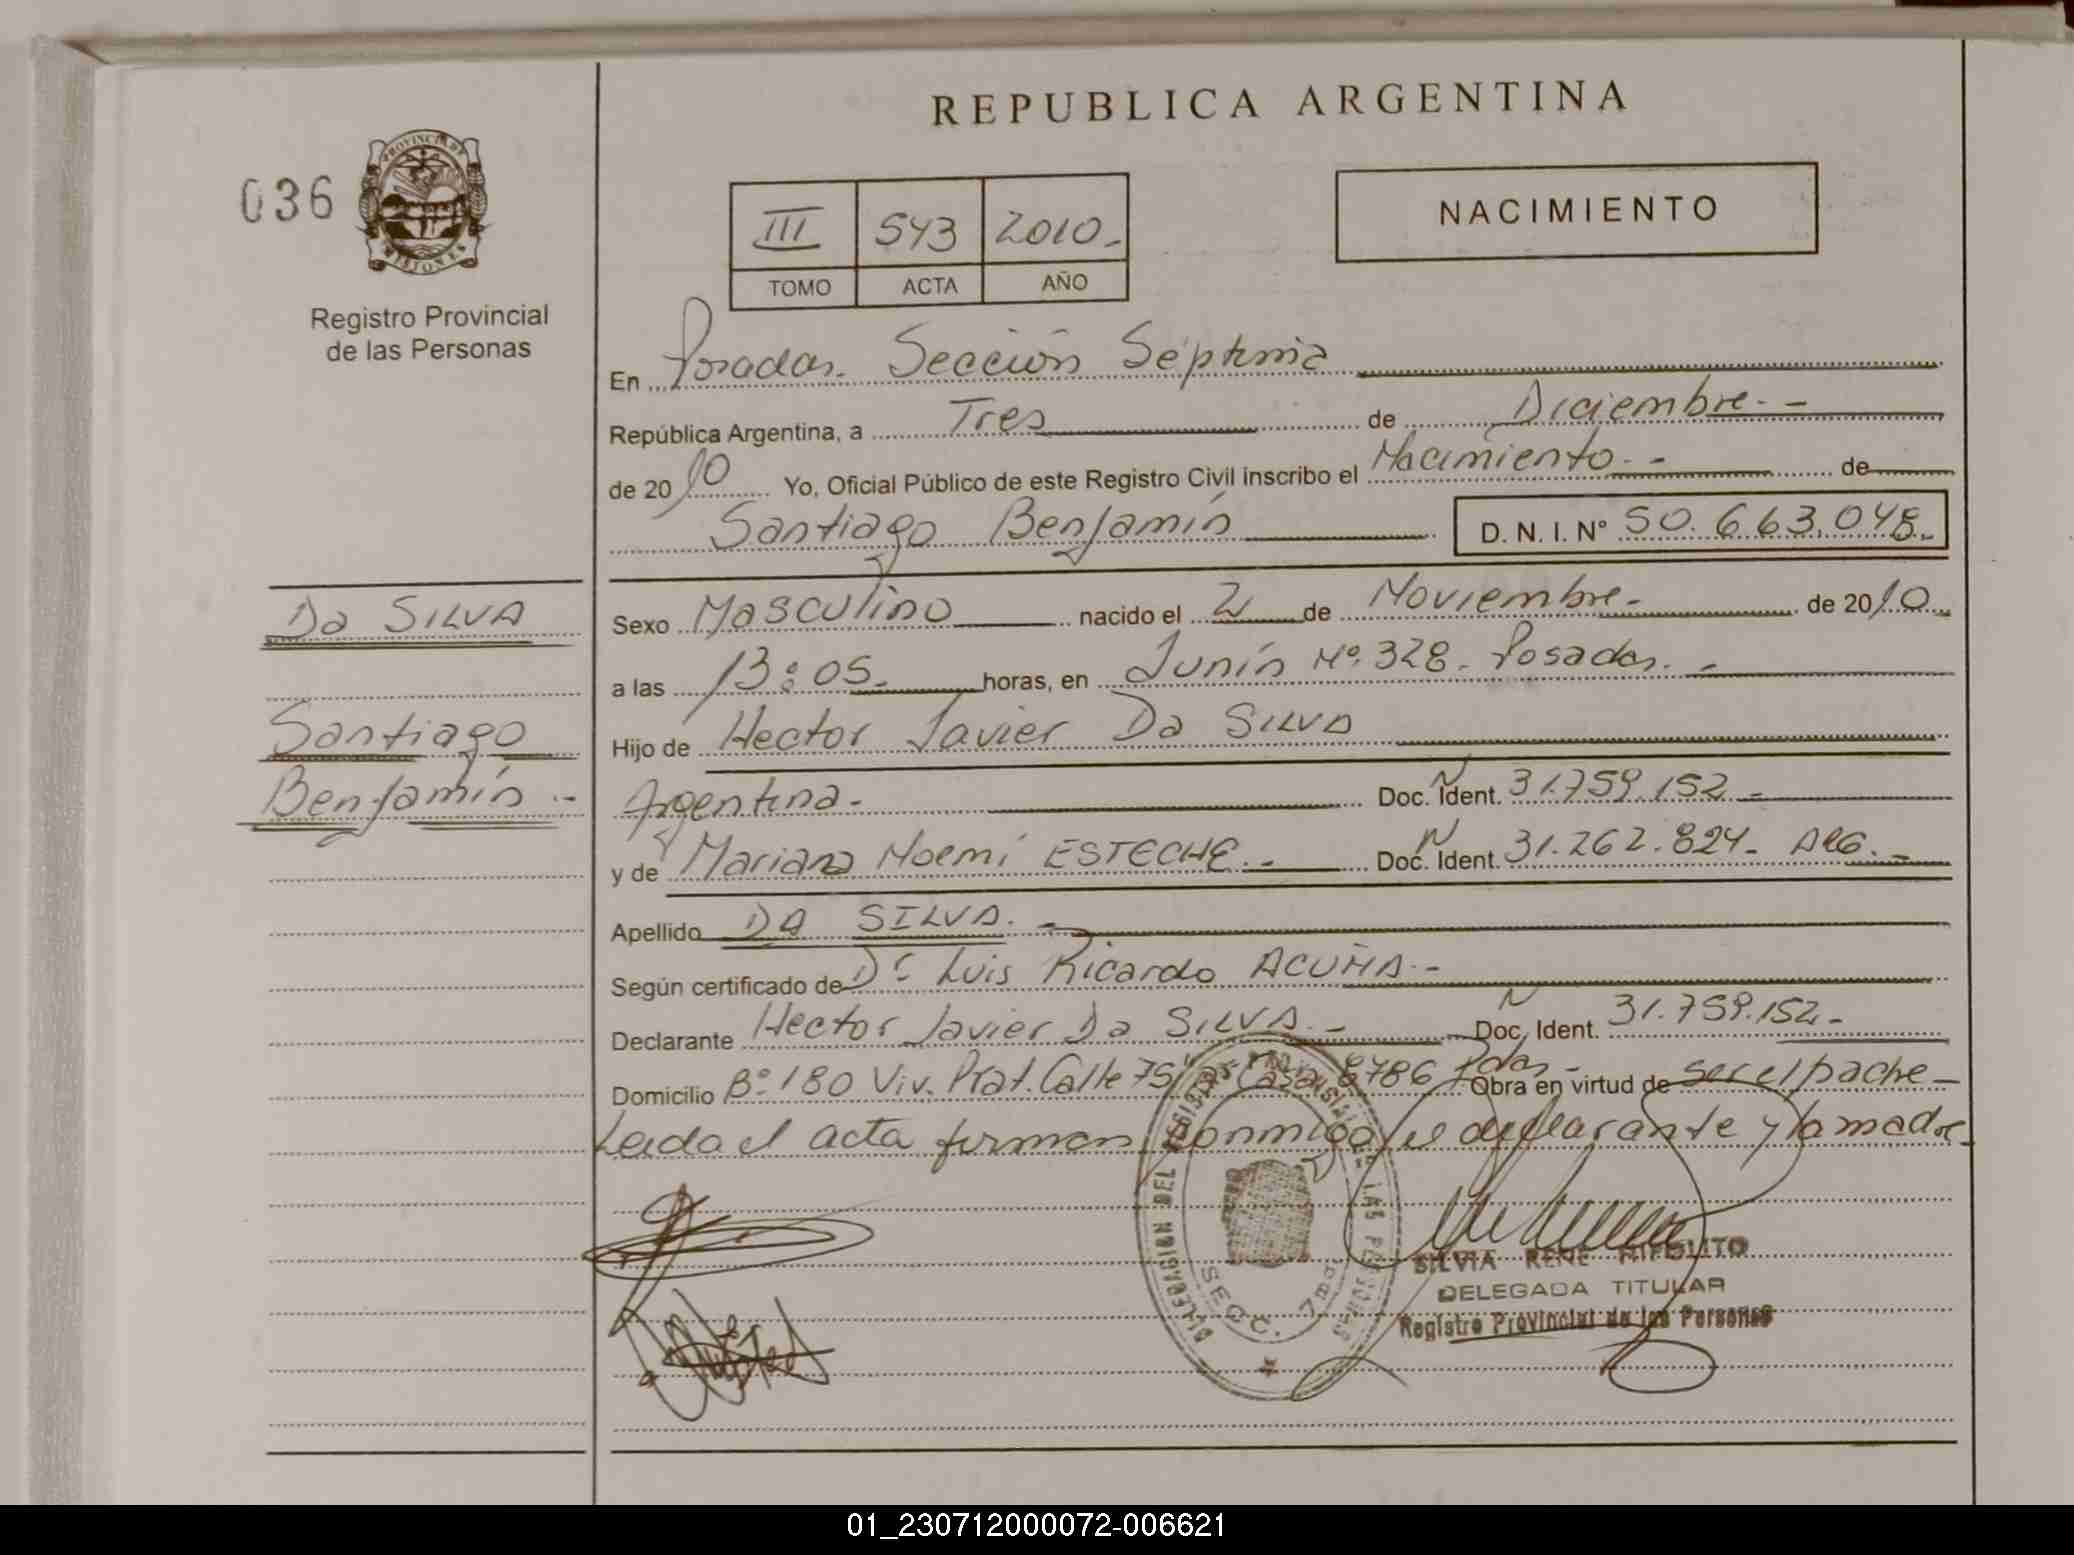 REPUBLICA ARGENTINA
036
PROVINCIA DE
MISIONES
Registro Provincial
de las Personas
III 543 2010.-
TOMO ACTA AÑO
NACIMIENTO
En Posadas. Sección Séptima
República Argentina, a Tres de Diciembre.-
de 2010 Yo, Oficial Público de este Registro Civil inscribo el Nacimiento.- de
Santiago Benjamín D. N. I. N° 50.663.048.-
Da SILVA
Santiago
Benjamín.-
Sexo Masculino nacido el 2 de Noviembre.- de 2010.
a las 13:05.- horas, en Junín Nº 328. Posadas.-
Hijo de Hector Javier Da SILVA
Argentina.- Doc. N Ident. 31.759.152.-
y de Mariana Noemí ESTECHE.- Doc. N Ident. 31.262.824- ARG.-
Apellido DA SILVA.-
Según certificado de Dr. Luis Ricardo ACUÑA.-
Declarante Hector Javier Da SILVA.- Doc. N Ident. 31.759.152.-
Domicilio Bº 180 Viv. Prat. Calle 75 Casa 8786 Pdas.- Obra en virtud de ser el padre-
Leida el acta firman conmigo el declarante y la madre-
DELEGACION DEL REGISTRO PROVINCIAL DE LAS PERSONAS
SECC. 7ma.
SILVIA RENE HIPOLITO
DELEGADA TITULAR
Registro Provincial de las Personas
01_230712000072-006621